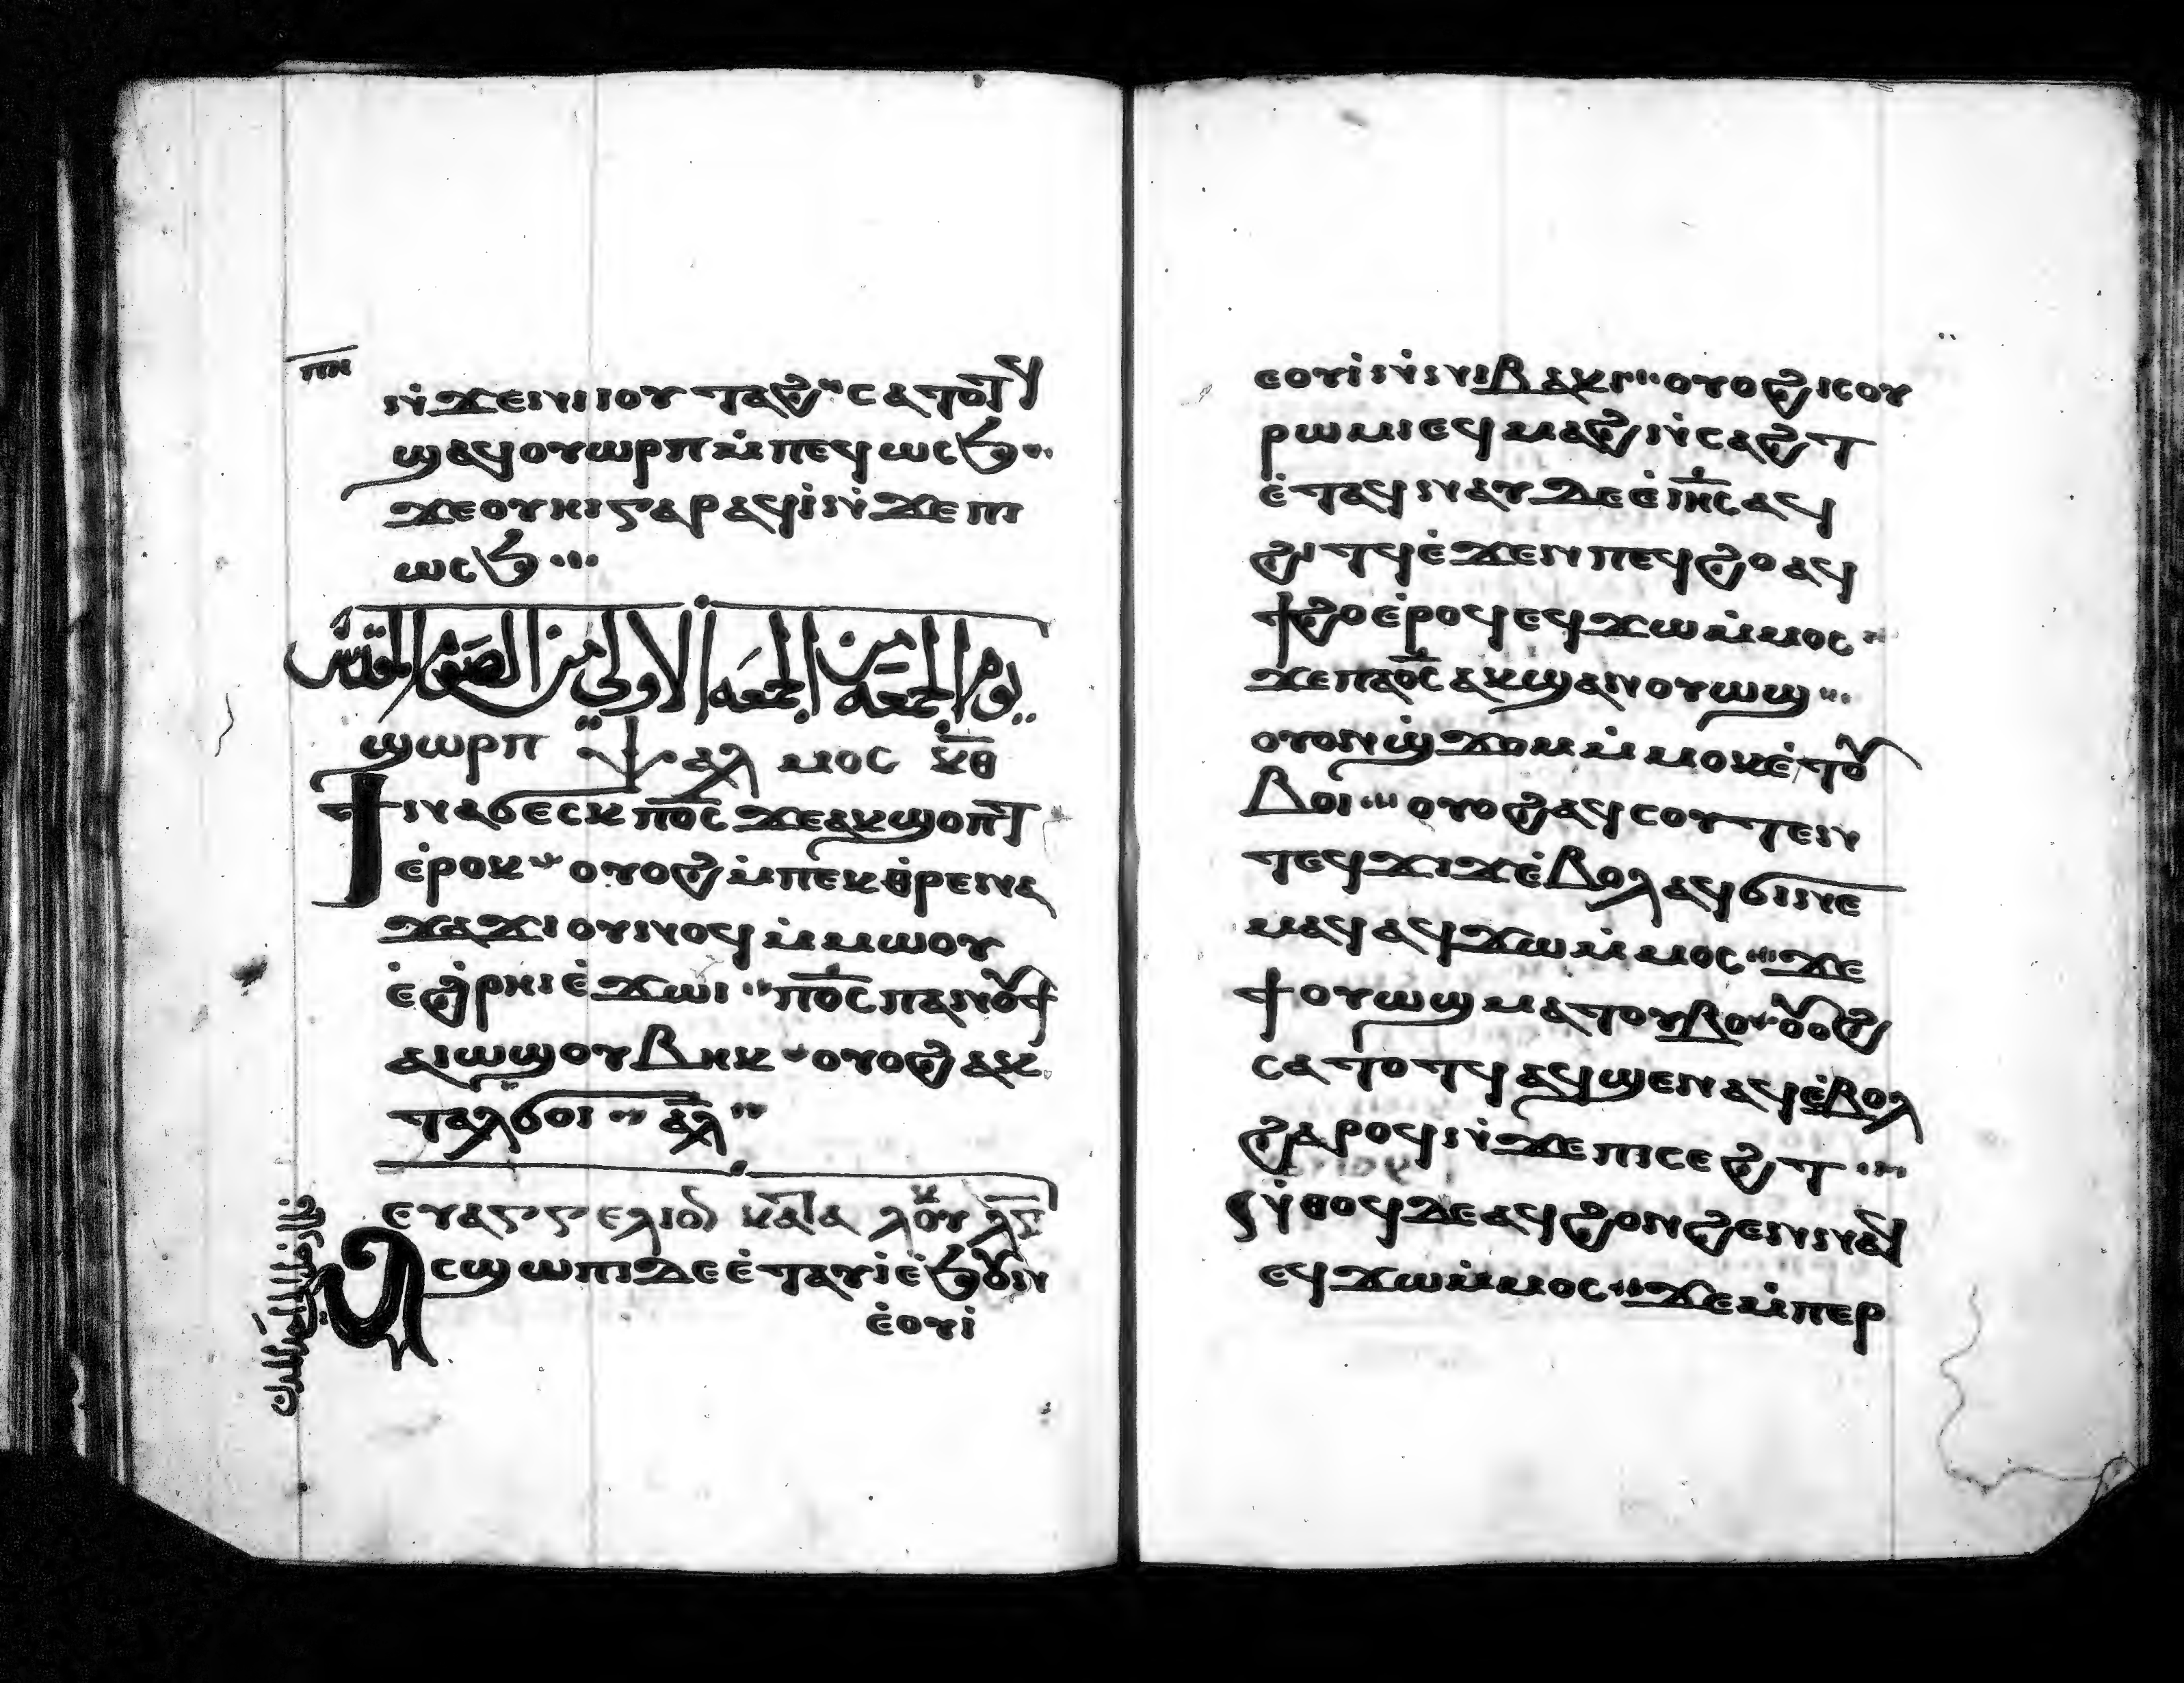 ⲡⲏ
ⲛ̇ϫⲉⲛⲓⲟⲩⲧⲁϩ ⲥⲁⲧⲟⲧϥ
ϣⲁϥⲟⲩⲱⲣⲡ ⲙ̇ⲡⲉϥⲱⲥϧ
ϫⲉⲟⲩⲏⲓ ⲅⲁⲣ ⲁϥⲓ̇ⲛ̇ϫⲉⲡⲓ
ⲱⲥϧ
يوم الجمعه من الجمعه الاولي من الصوم المقدس
ϣⲱⲣⲡ ⲯⲁⲗⲙⲟⲥ ⲕ̅ⲑ̅
ϯⲛⲁϭⲉⲥⲕ ⲡ̅ⲟ̅ⲥ̅ ϫⲉⲁⲕϣⲟⲡⲧ
ⲉ̇ⲣⲟⲕ ⲟⲩⲟϩ ⲙ̇ⲡⲉⲕⲑⲣⲉⲛⲁ
ϫⲁϫⲓ ⲟⲩⲛⲟϥ ⲙ̇ⲙⲱⲟⲩ
ⲉ̇ϩ̇ⲣⲏⲓ ⲉ̇ϫⲱⲓ ⲡ̅ⲟ̅ⲥ̅ ⲡⲁⲛⲟⲩϯ
ⲁⲓⲱϣ ⲟⲩⲃⲏⲕ ⲟⲩⲟϩ ⲁⲕ
ⲧⲁⲗϭⲟⲓ ⲁ̅ⲗ̅
ⲉⲩⲁⲅⲅⲉⲗⲓⲟⲛ ⲕⲁⲧⲁ ⲗⲟⲩⲕ
ⲁⲥϣⲱⲡⲓ ⲇⲉ ⲉ̇ⲧⲁⲩⲓ̇ ⲉ̇ϧⲟⲩⲛ
ⲉ̇ⲟⲩⲓ̇
ⲉⲟⲩⲓ̇ ⲛ̇ⲛⲓⲃⲁⲕⲓ ⲟⲩⲟϩ ⲓⲥ ⲟⲩ
ⲣⲱⲙⲓ ⲉϥⲙⲁϩ ⲛ̇ⲥⲁϩⲧ
ⲉ̇ⲧⲁϥⲛⲁⲩ ⲇⲉ ⲉ̇ⲓ̅ⲏ̅ⲥ̅ ⲁϥ
ϩⲓⲧϥ ⲉ̇ϫⲉⲛ ⲡⲉϥϩⲟ ⲁϥ
ϯϩⲟ ⲉ̇ⲣⲟϥ ⲉϥϫⲱ ⲙ̇ⲙⲟⲥ
ϫⲉ ⲡⲁ̅ⲟ̅ⲥ̅ ⲁⲕϣⲁⲛⲟⲩⲱϣ
ⲟⲩⲟⲛϣ̇ϫⲟⲙ ⲙ̇ⲙⲟⲕ ⲉ̇ⲧⲟⲩ
ⲃⲟⲓ ⲟⲩⲟϩ ⲁϥⲥⲟⲩⲧⲉⲛ
ⲧⲉϥϫⲓϫ ⲉ̇ⲃⲟⲗ ⲁϥϭⲓⲛⲉ
ⲙⲁϥ ⲁϥϫⲱ ⲙ̇ⲙⲟⲥ ϫⲉ
ϯⲟⲩⲱϣ ⲙⲁⲧⲟⲩⲃⲟ ⲟⲩⲟϩ
ⲥⲁⲧⲟⲧϥ ⲁϥϣⲉⲛⲁϥ ⲉ̇ⲃⲟⲗ
ϩⲁⲣⲟϥ ⲛ̇ϫⲉⲡⲓⲥⲉϩⲧ
ⲛ̇ⲑⲟϥ ⲇⲉ ⲁϥϩⲟⲛϩⲉⲛ ⲛⲁϥ
ⲉϥϫⲱ ⲙ̇ⲙⲟⲥ ϫⲉ ⲙ̇ⲡⲉⲣ